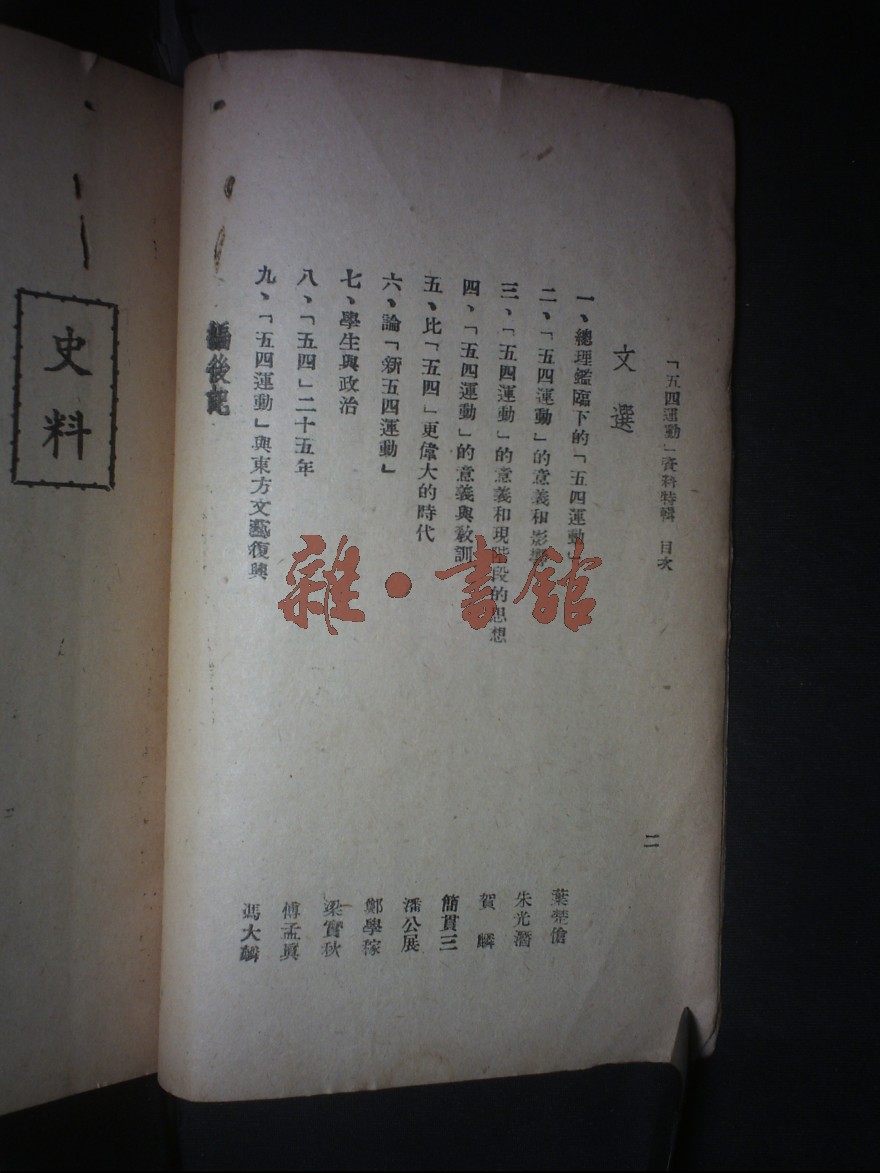 「五四運動」資料特輯　目次
二
文選
一、總理鑑臨下的「五四運動」　葉楚傖
二、「五四運動」的意義和影響　朱光潛
三、「五四運動」的意義和現階段的思想　賀麟
四、「五四運動」的意義與教訓　簡貫三
五、比「五四」更偉大的時代　潘公展
六、論「新五四運動」　鄭學稼
七、學生與政治　梁實秋
八、「五四」二十五年　傅孟眞
九、「五四運動」與東方文藝復興　馮大麟
編後記
史料
雜·書館